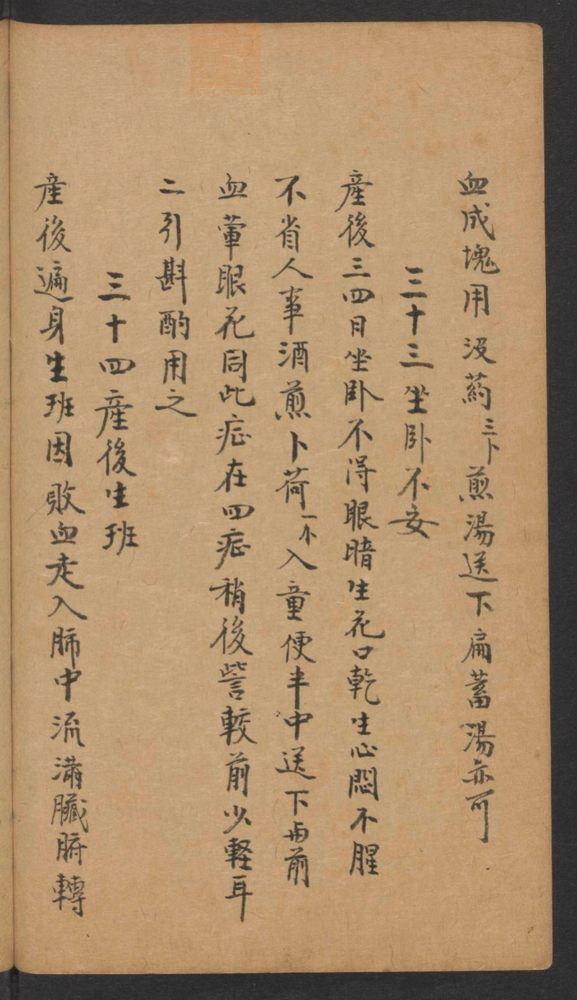 血成塊用没葯三卜煎湯送下扁蓄湯亦可
三十三坐卧不安
産後三四日坐卧不得眼暗生花口乾生心悶不腥
不省人事酒煎卜荷一个入童便半中送下与前
血暈眼花同此症在四症稍後訾較前少軽耳
二引斟酌用之
三十四産後生班
産後遍身生班因敗血走入肺中流満臓腑轉